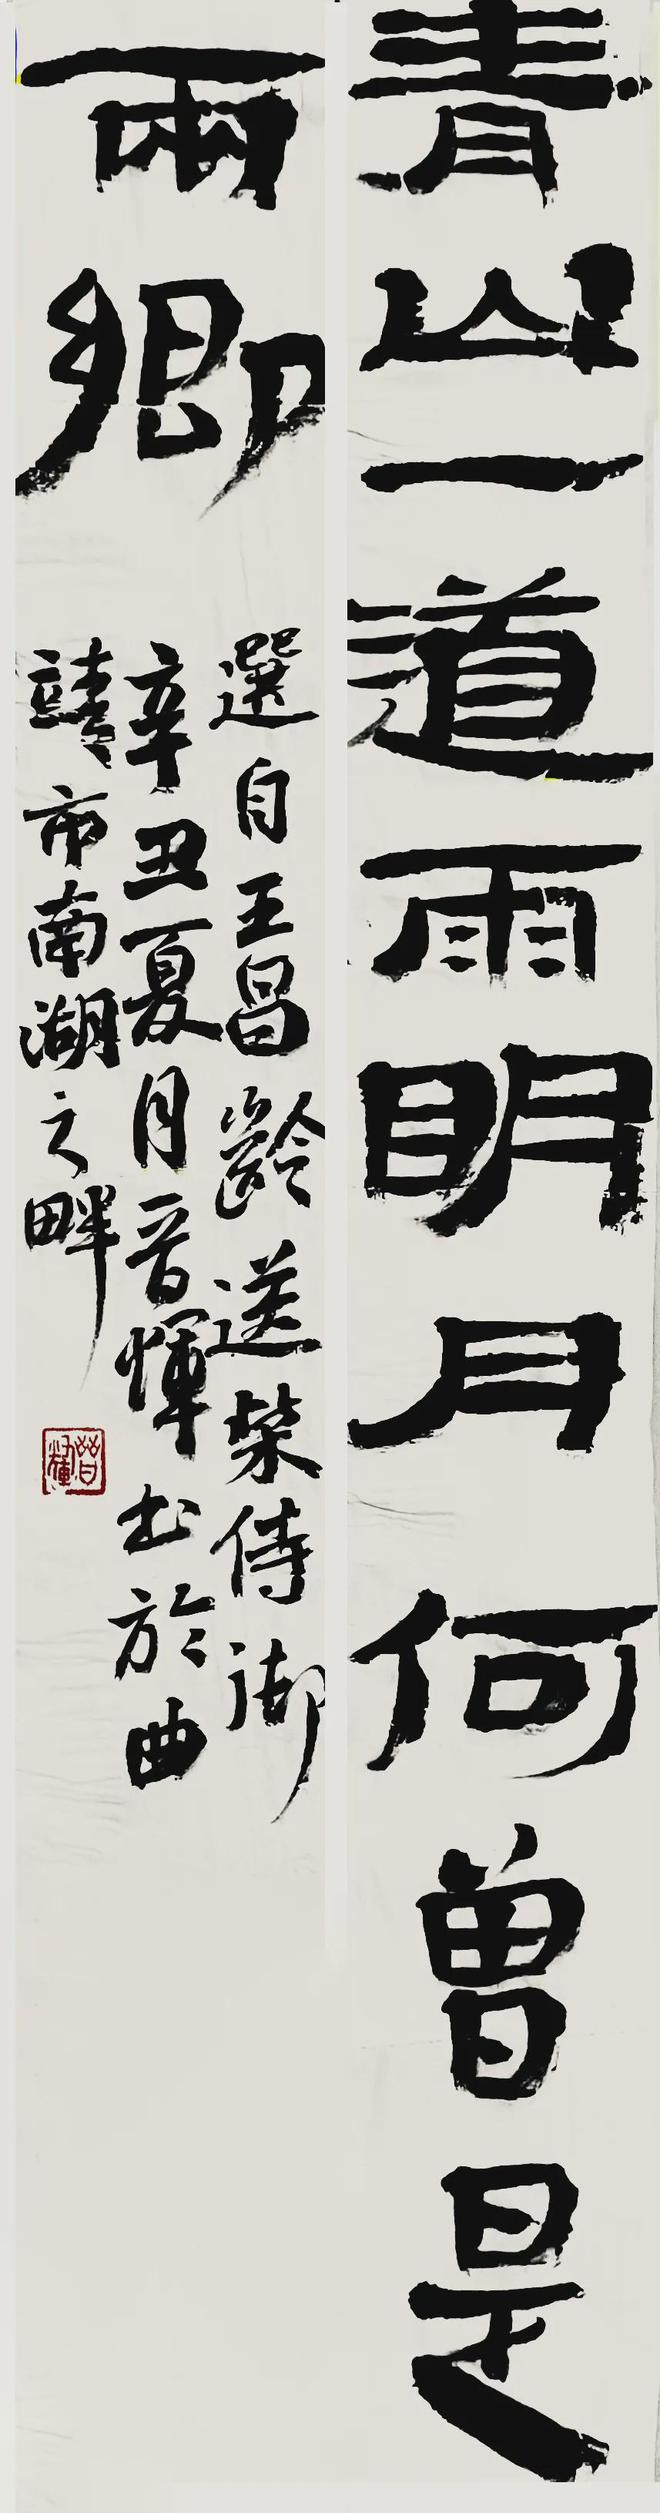 青山一道雨明月何曾是
兩鄉
選自王昌齡送柴侍御
辛丑夏月晋煇书於曲
靖市南湖之畔
晉煇